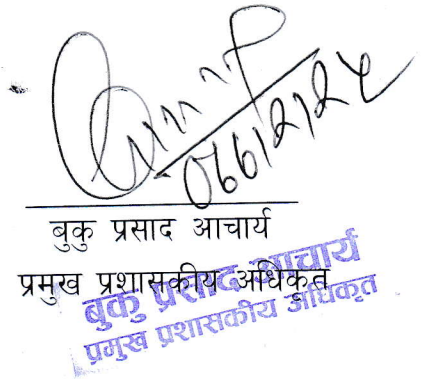 ०७७।२।२५
बुकु प्रसाद आचार्य
प्रमुख प्रशासकीय अधिकृत
बुकु प्रसाद आचार्य
प्रमुख प्रशासकीय अधिकृत